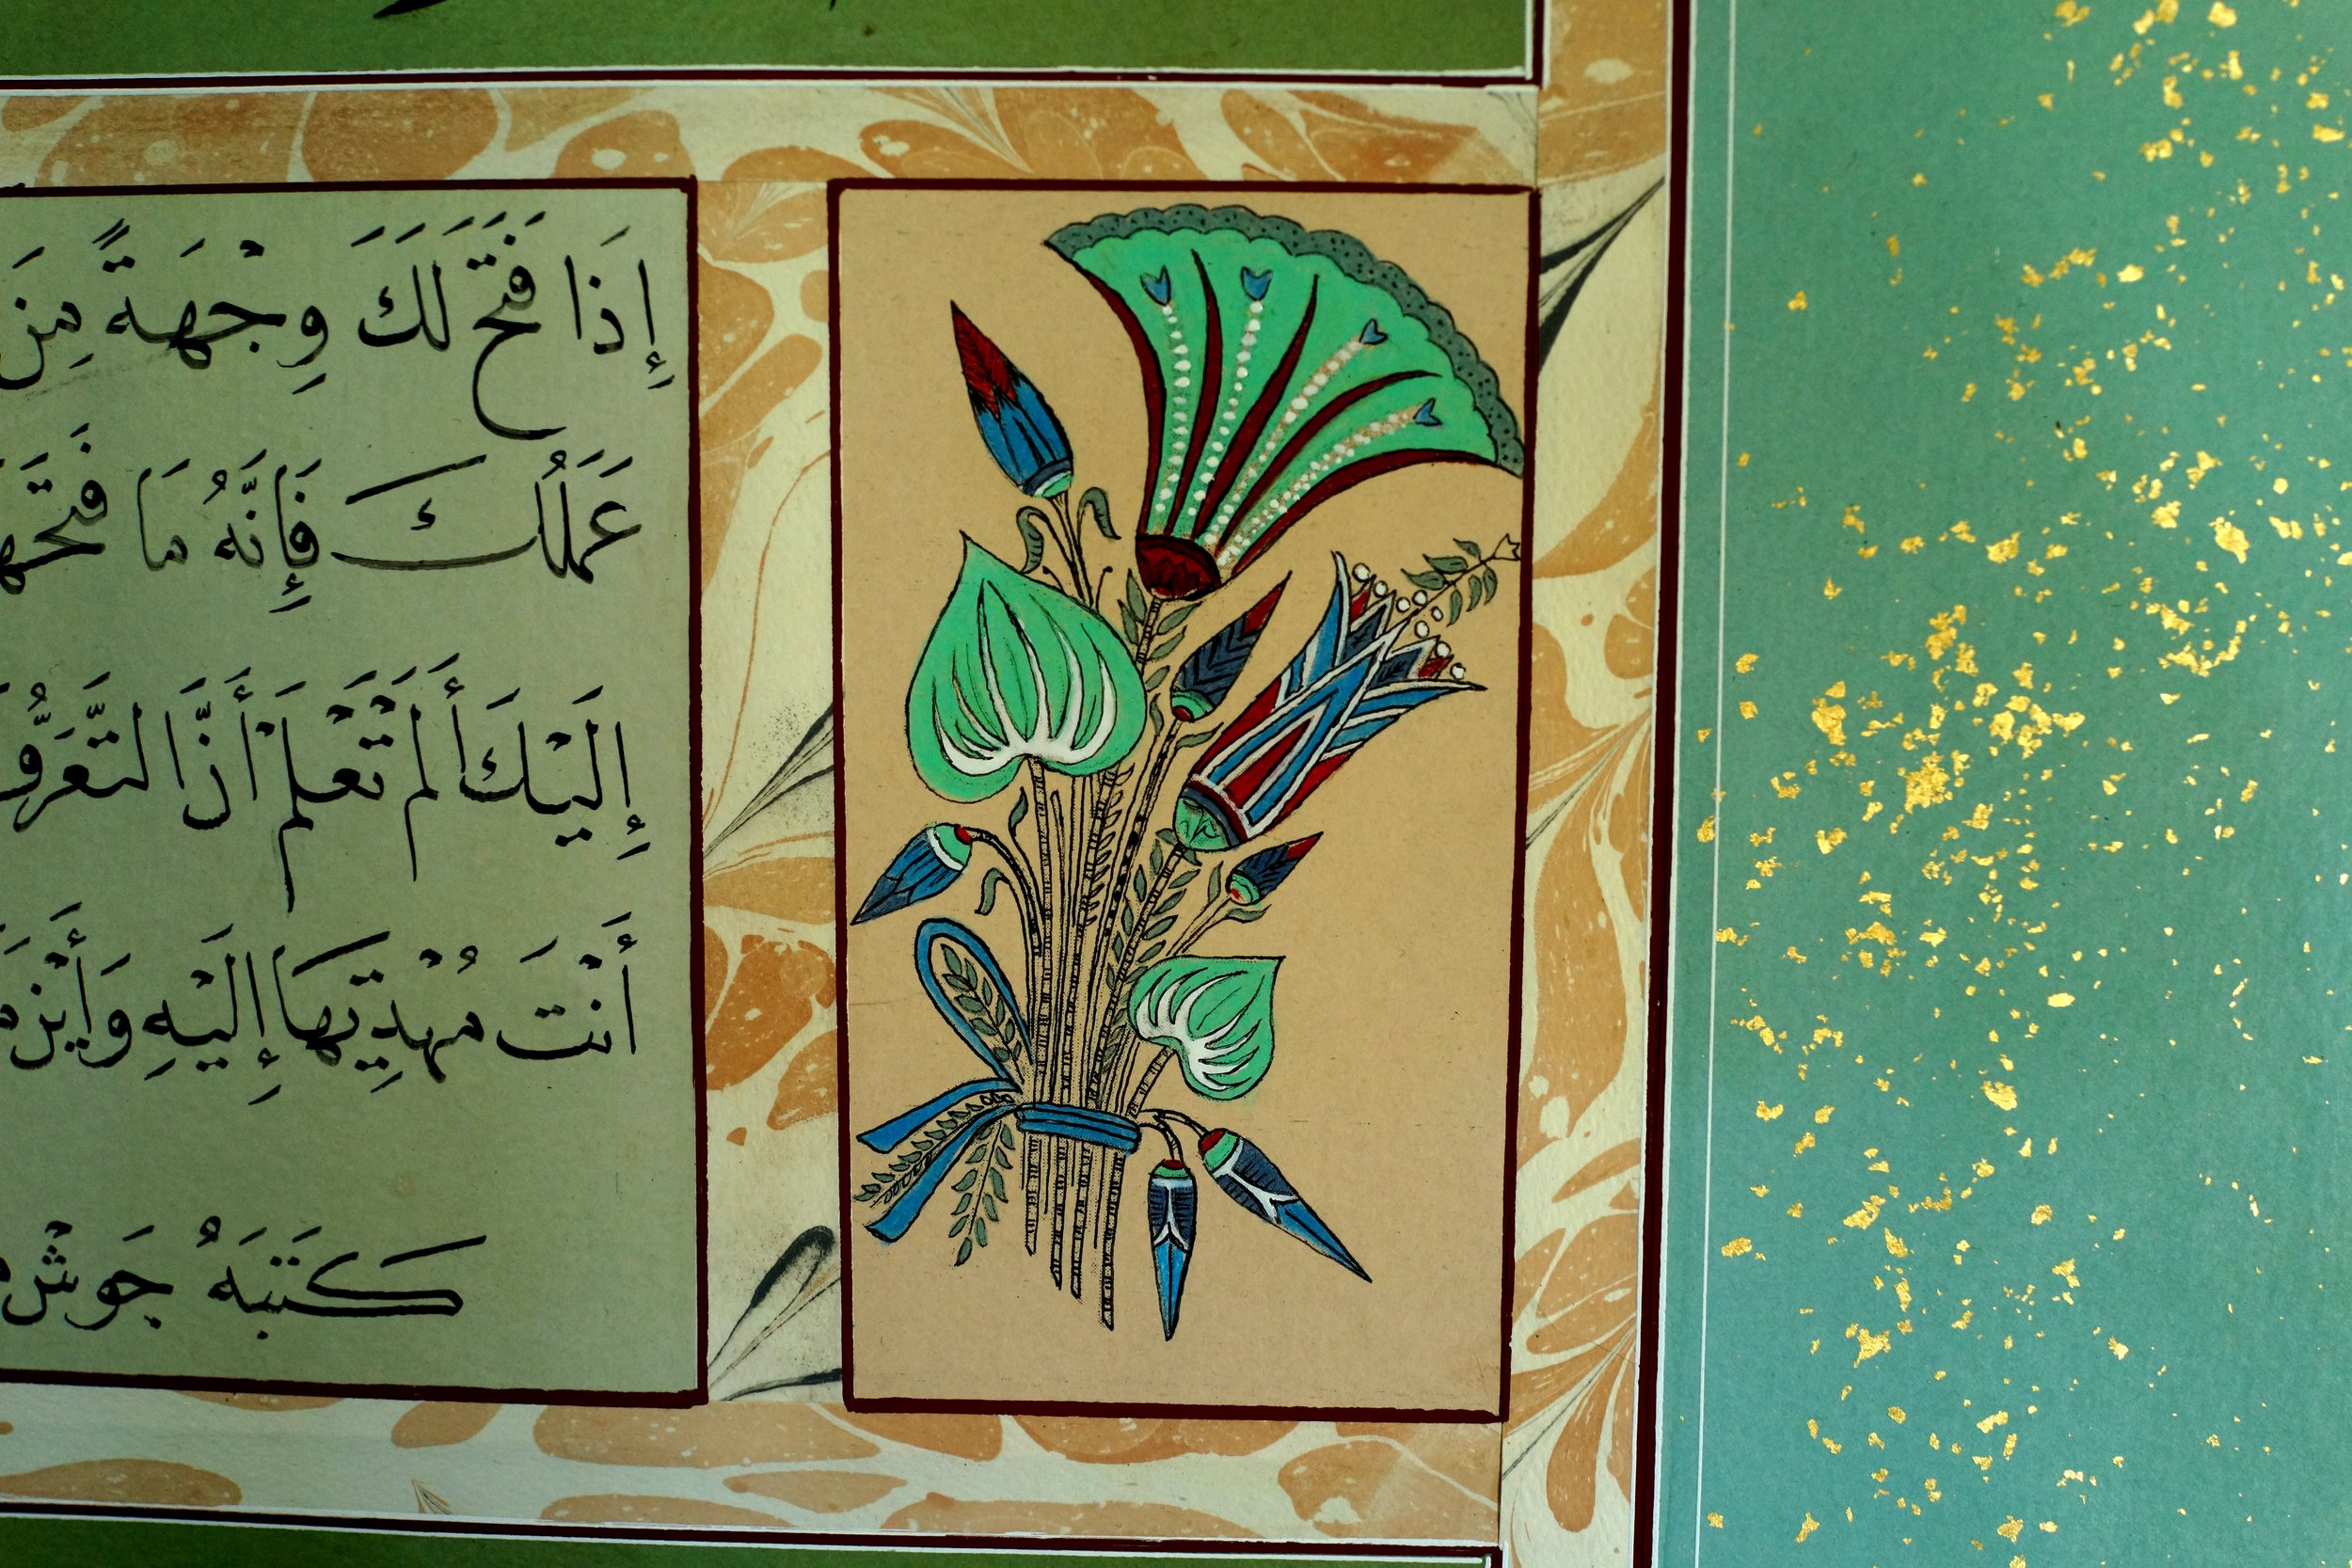 إِذَا فَتَحَ لَكَ وِجْهَةً مِنَ
عَمَلُكَ فَإِنَّهُ مَا فَتَحَهَا
إِلَيْكَ أَلَمْ تَعْلَمْ أَنَّ التَّعَرُّفَ
أَنْتَ مُهْدِيهَا إِلَيْهِ وَأَيْنَ مَا
كَتَبَهُ جَوَشْ